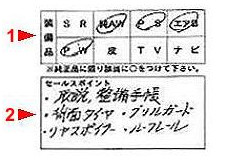 1
装備品 SR 純AW PS エアB
PW 皮 TV ナビ
※純正品に限り該当に○をつけて下さい。
2
セールスポイント
・取説、整備手帳
・背面タイヤ ・グリルガード
・リヤスポイラー ・ルーフレール